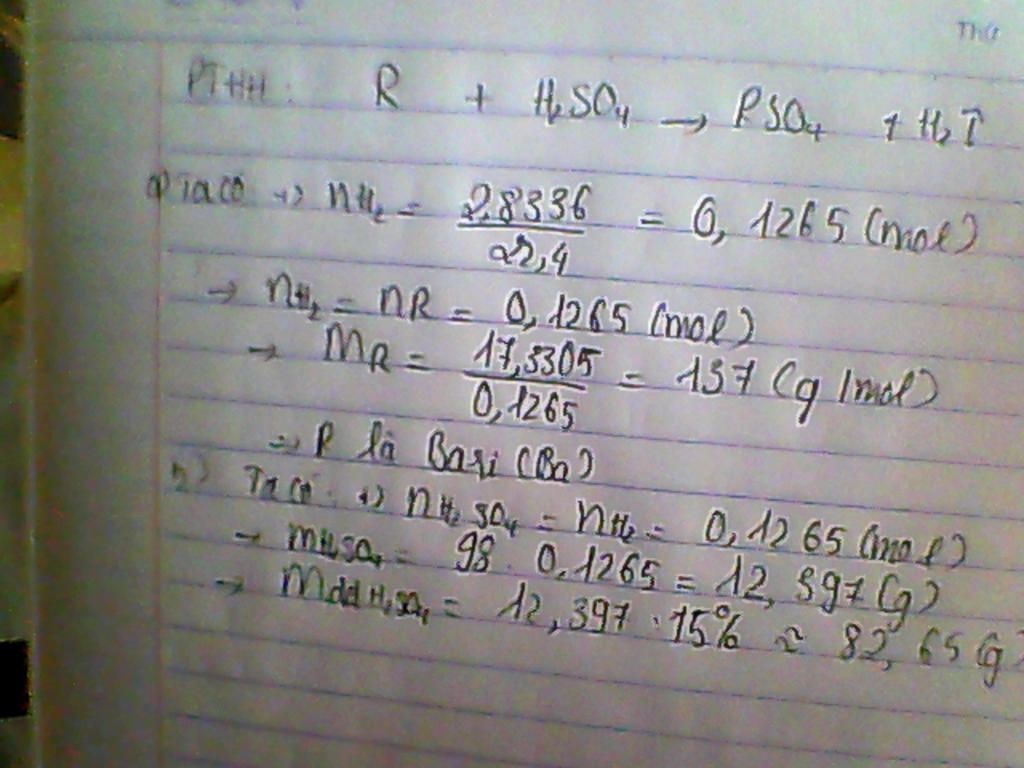 Thứ
PTHH: R + H₂SO₄ → RSO₄ + H₂↑
a) Ta có: nH₂ = 2,8336 / 22,4 = 0,1265 (mol)
→ nH₂ = nR = 0,1265 (mol)
→ MR = 17,3305 / 0,1265 = 137 (g/mol)
⇒ R là Bari (Ba)
b) Ta có: nH₂SO₄ = nH₂ = 0,1265 (mol)
→ mH₂SO₄ = 98 . 0,1265 = 12,397 (g)
→ mddH₂SO₄ = 12,397 : 15% ≈ 82,65 (g)